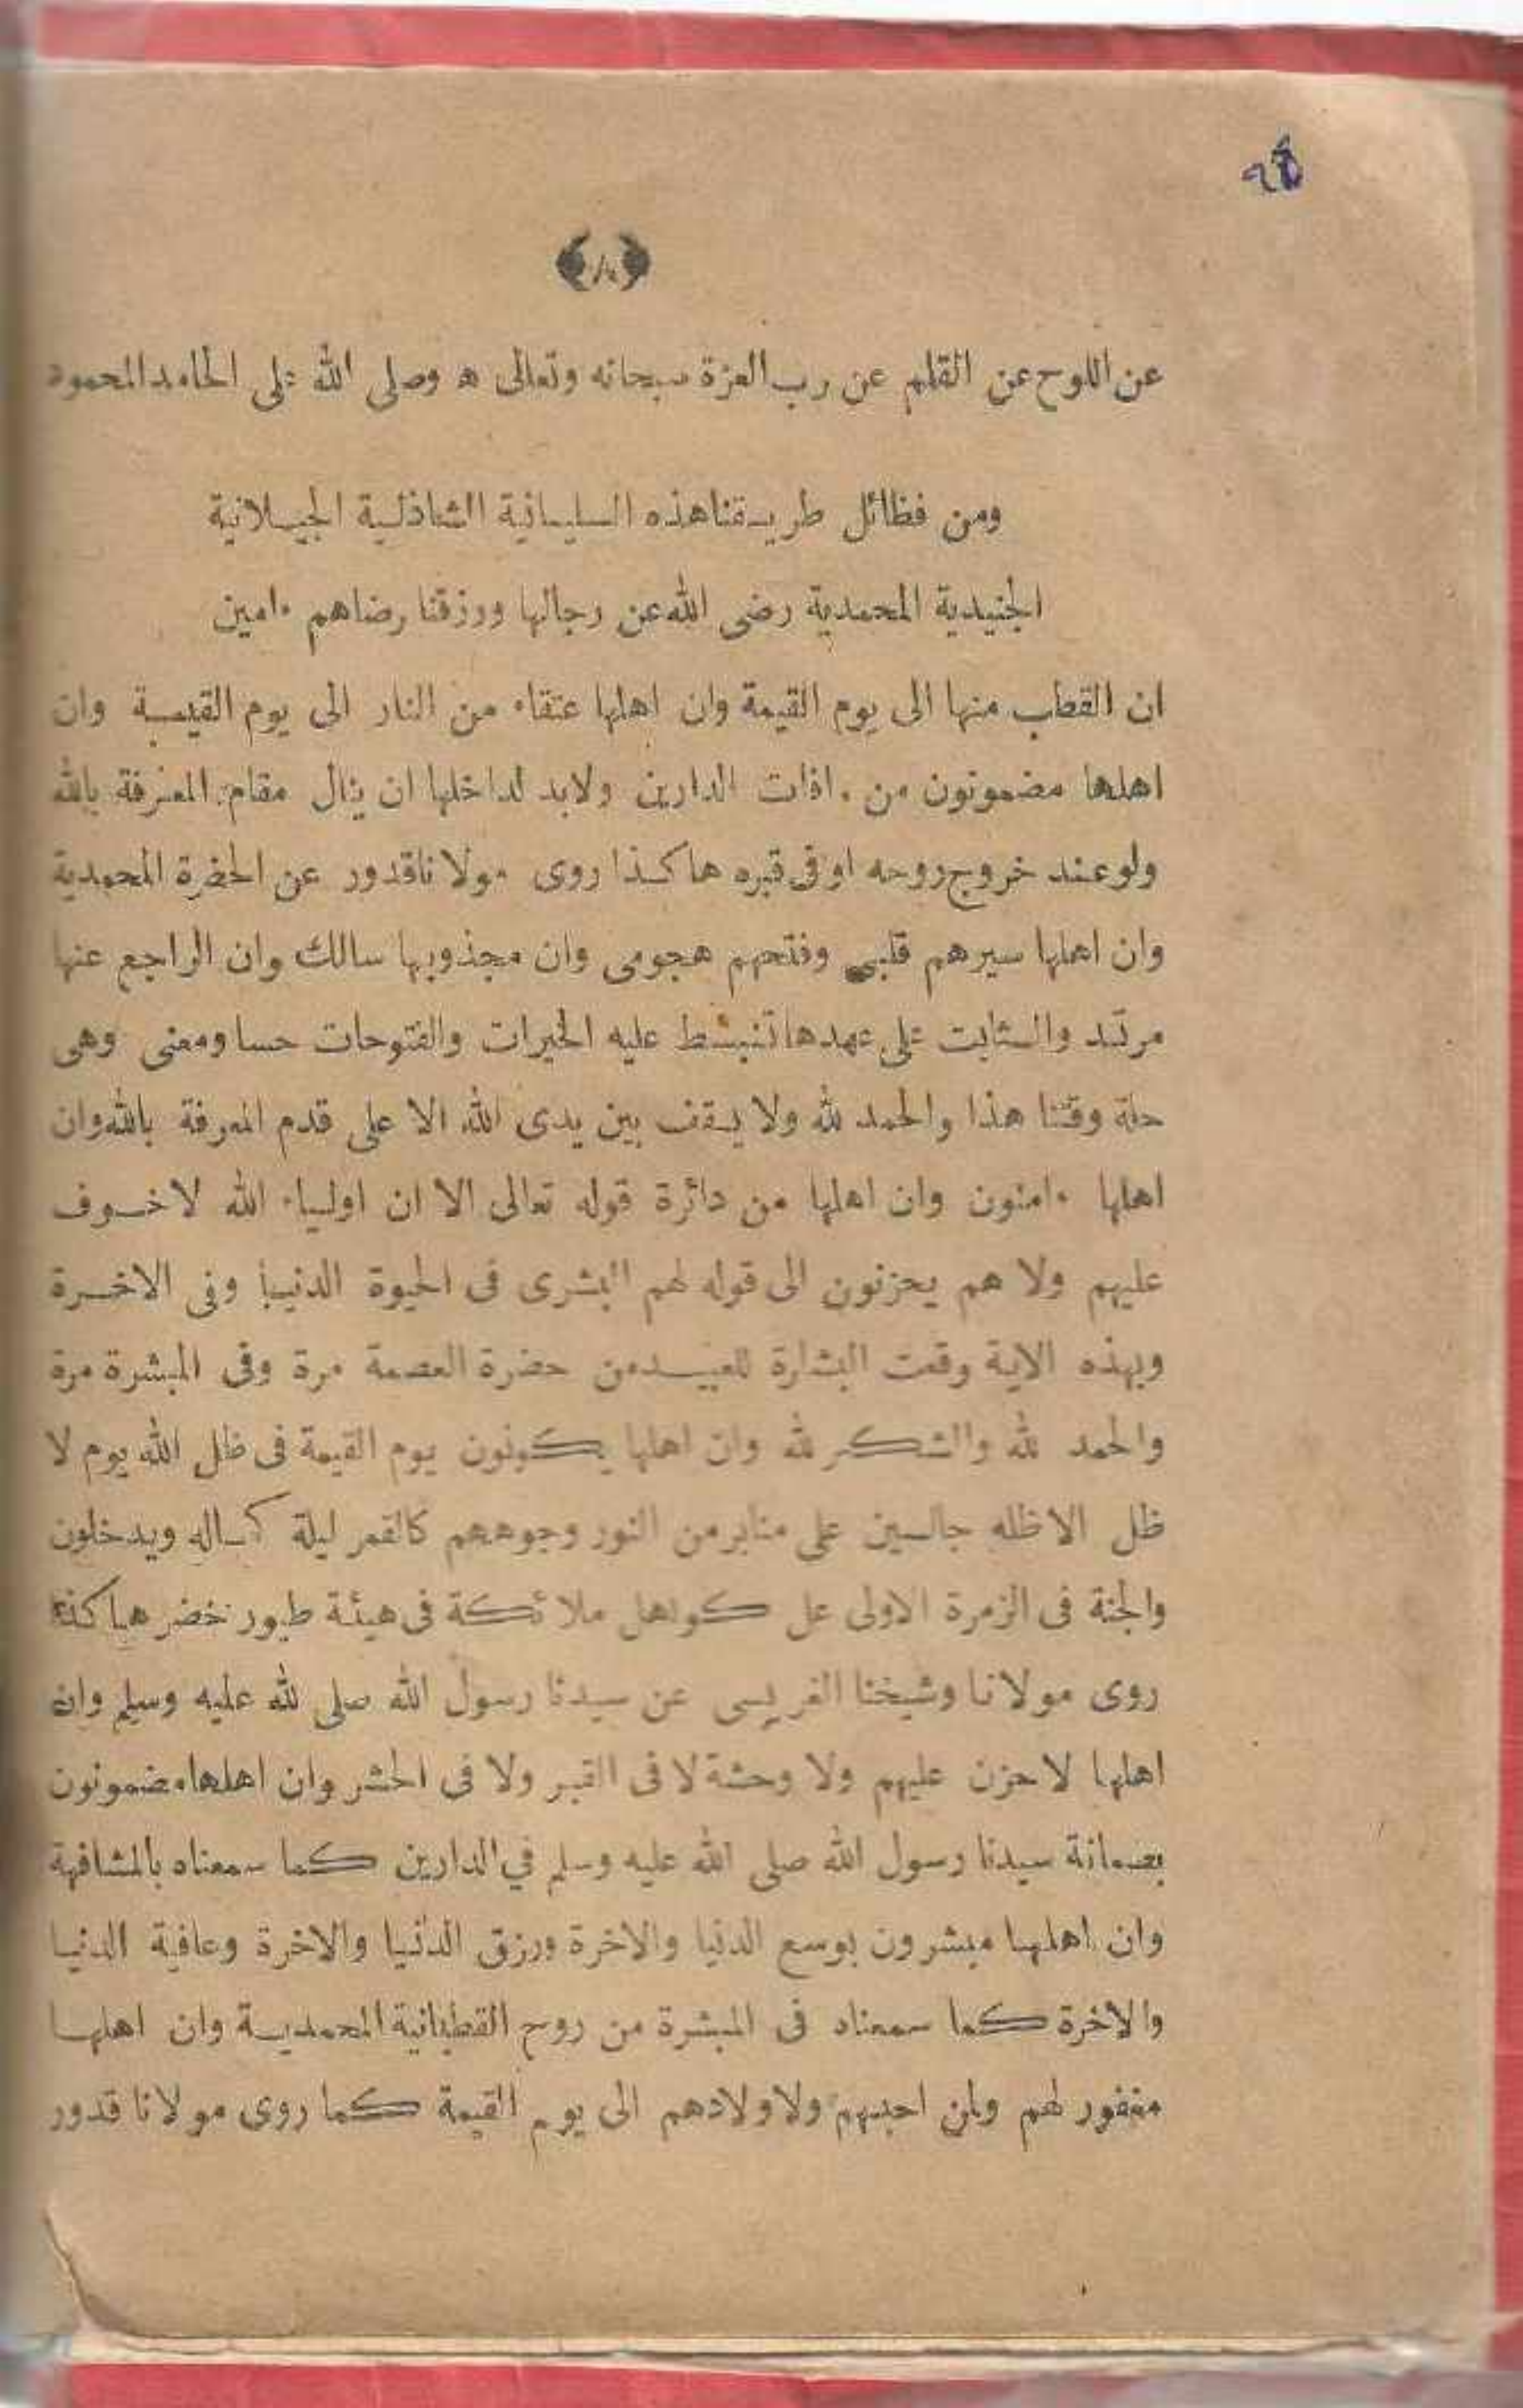 ﴿٨﴾
عن اللوح عن القلم عن رب العزة سبحانه وتعالى ه وصلى الله على الحامد المحمود
ومن فظائل طريقنا هذه السليمانية الشاذلية الجيلانية
الجنيدية المحمدية رضى الله عن رجالها ورزقنا رضاهم ءامين
ان القطب منها الى يوم القيمة وان اهلها عتقاء من النار الى يوم القيمة وان
اهلها مضمونون من ءافات الدارين ولابد لداخلها ان ينال مقام المعرفة بالله
ولو عند خروج روحه او فى قبره هاكذا روى مولانا قدور عن الحضرة المحمدية
وان اهلها سيرهم قلبى وفتحهم هجومى وان مجذوبها سالك وان الراجع عنها
مرتد والثابت على عهدها تنبسط عليه الخيرات والفتوحات حسا ومعنى وهى
حلة وقتنا هذا والحمد لله ولا يقف بين يدى الله الا على قدم المعرفة بالله وان
اهلها ءامنون وان اهلها من دائرة قوله تعالى الا ان اولياء الله لا خوف
عليهم ولا هم يحزنون الى قوله لهم البشرى فى الحيوة الدنيا وفى الاخرة
وبهذه الاية وقعت البشارة للعبيد من حضرة العصمة مرة وفى المبشرة مرة
والحمد لله والشكر لله وان اهلها يكونون يوم القيمة فى ظل الله يوم لا
ظل الا ظله جالسين على منابر من النور وجوههم كالقمر ليلة كماله ويدخلون
والجنة فى الزمرة الاولى عل كواهل ملائكة فى هيئة طيور خضر هاكذا
روى مولانا وشيخنا الغريسى عن سيدنا رسول الله صلى لله عليه وسلم وان
اهلها لا حزن عليهم ولا وحشة لا فى القبر ولا فى الحشر وان اهلها مضمونون
بضمانة سيدنا رسول الله صلى الله عليه وسلم في الدارين كما سمعناه بالمشافهة
وان اهلها مبشرون بوسع الدنيا والاخرة ورزق الدنيا والاخرة وعافية الدنيا
والاخرة كما سمعناه فى المبشرة من روح القطبانية المحمدية وان اهلها
مغفور لهم ولمن احبهم ولاولادهم الى يوم القيمة كما روى مولانا قدور